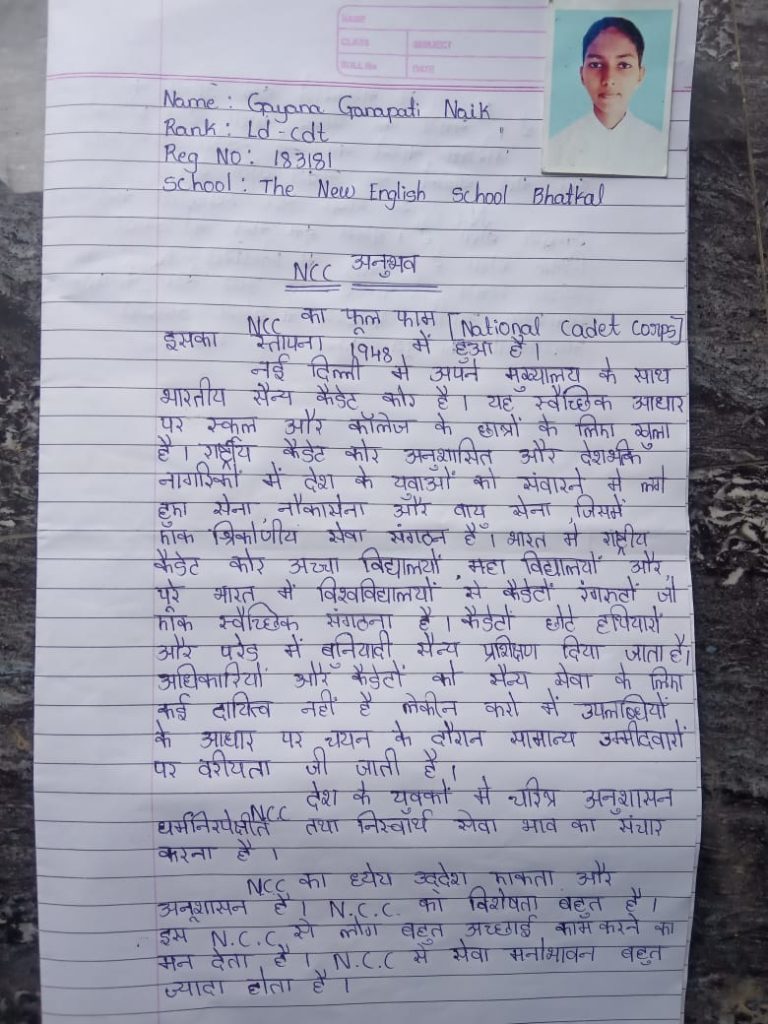 NAME
CLASS SUBJECT
ROLL No DATE
Name : Gayana Ganapati Naik
Rank : Ld - cdt
Reg NO : 183181
School : The New English School Bhatkal
NCC अनुभव
NCC का फूल फाम [National Cadet Corps]
इसका स्तापना 1948 में हुआ है।
नई दिल्ली मे अपने मुख्यालय के साथ
भारतीय सैन्य कैडेट कोर है। यह स्वैच्छिक आधार
पर स्कूल और कॉलेज के छात्रों के लिका खुला
है। राष्ट्रीय कैडेट कोर अनुशासित और देशभक्ति
नागरिकों में देश के युवाओं को संवारने मे लगे
हुका सेना, नौकासेना और वायु सेना, जिसमें
काक त्रिकोणीय सेवा संगठन है। भारत मे राष्ट्रीय
कैडेट कोर अच्चा विद्यालयों, महा विद्यालयों और
पूरे भारत में विश्वविद्यालयों से कैडेटों रंगरूटों जो
काक स्वैच्छिक संगठना है। कैडेटों छोटे हथियारों
और परेड में बुनियादी सैन्य प्रशिक्षण दिया जाता है।
अधिकारियों और कैडेटों को सैन्य सेवा के लिका
कई दायित्व नहीं है लेकीन करो में उपलब्धियों
के आधार पर चयन के दौरान सामान्य उम्मीदवारों
पर वरीयता जी जाती है।
NCC देश के युवकों मे चरित्र अनुशासन
धर्मनिरपेक्षीत तथा निस्वार्थ सेवा भाव का संचार
करना है।
NCC का ध्येय उद्देश काकता और
अनूशासन है। N.C.C. का विशेषता बहुत है।
इस N.C.C. से लोग बहुत अच्छाई काम करने का
मन देता है। N.C.C से सेवा मनोभावन बहुत
ज्यादा होता है।